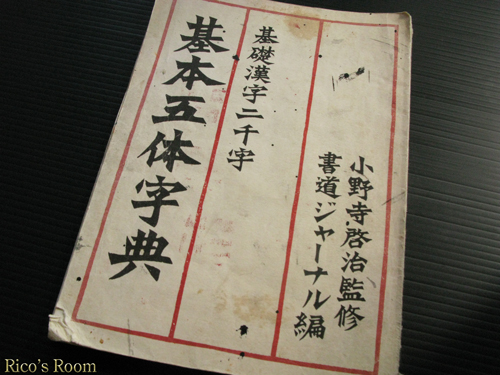 小野寺啓治監修
書道ジャーナル編
基礎漢字二千字
基本五体字典
Rico's Room